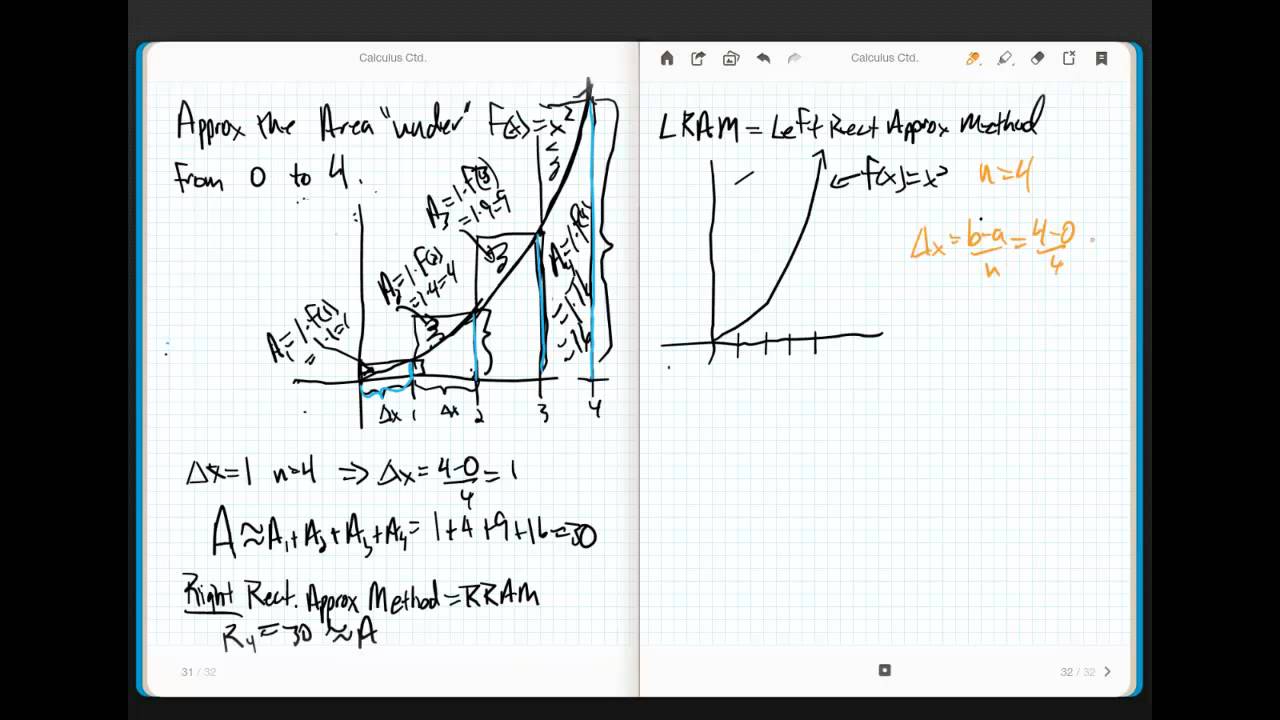 Calculus Ctd.
Approx the Area "under" f(x)=x²
from 0 to 4.
A₁=1·f(1)
=1·1=1
A₂=1·f(2)
=1·4=4
A₃=1·f(3)
=1·9=9
A₄=1·f(4)
=1·16
=16
Δx 1 Δx 2 3 4
Δx=1 n=4 ⇒ Δx=4-0/4=1
A≈A₁+A₂+A₃+A₄=1+4+9+16=30
Right Rect. Approx Method=RRAM
R₄=30≈A
31 / 32
Calculus Ctd.
LRAM=Left Rect Approx Method
f(x)=x² n=4
Δx=b-a/n=4-0/4
32 / 32